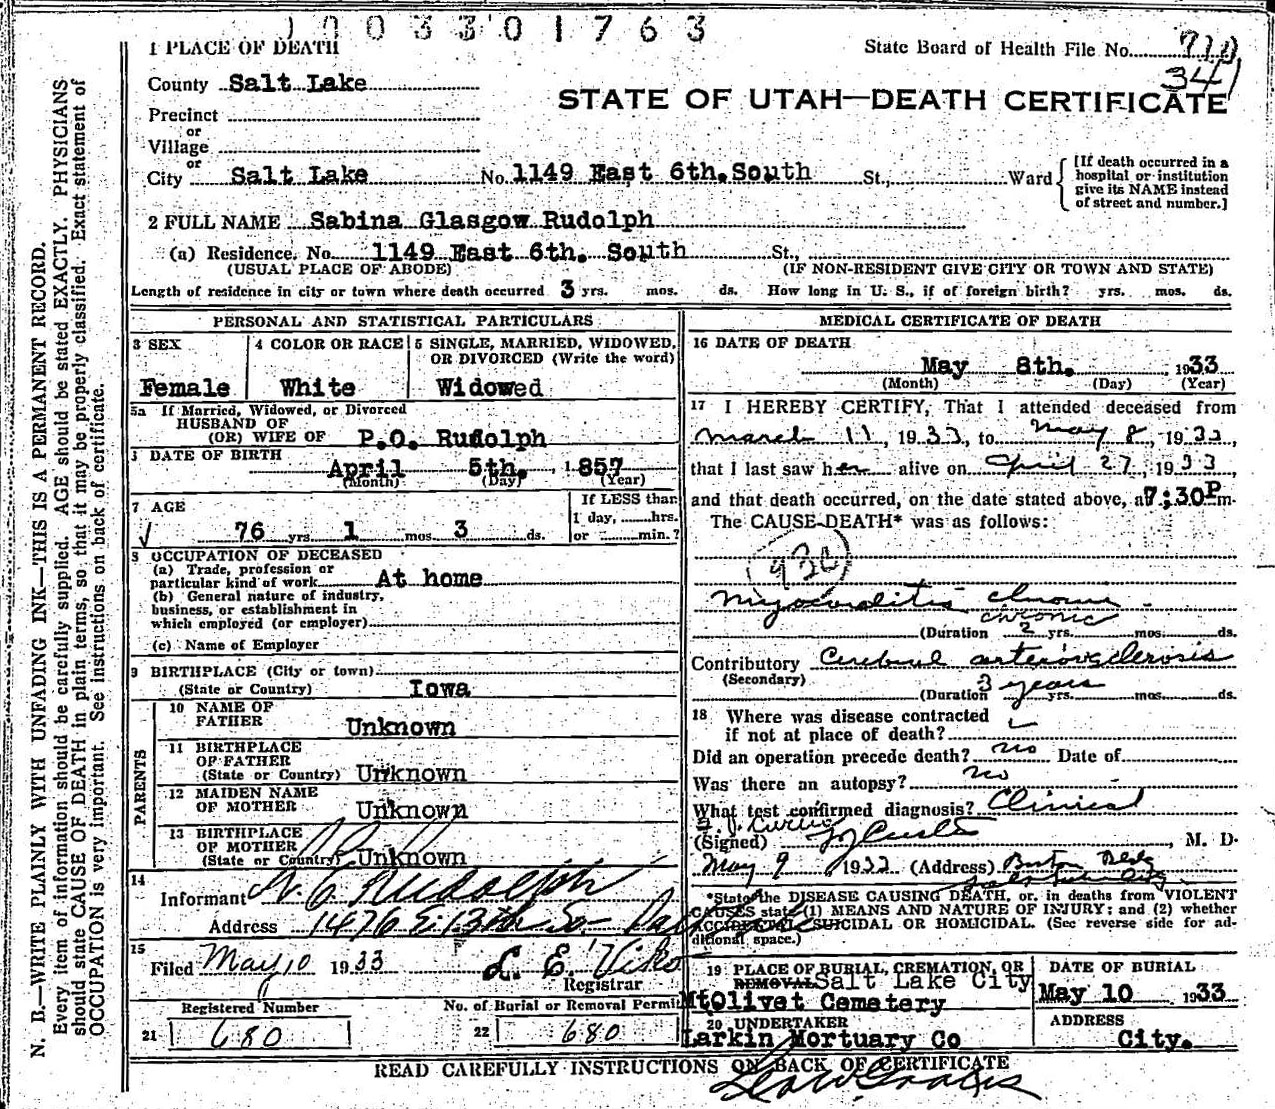 1003301763
1 PLACE OF DEATH
State Board of Health File No. 710
341
County Salt Lake
STATE OF UTAH—DEATH CERTIFICATE
Precinct
or
Village
or
City Salt Lake No. 1149 East 6th. South St., Ward
[If death occurred in a hospital or institution give its NAME instead of street and number.]
2 FULL NAME Sabina Glasgow Rudolph
(a) Residence, No. 1149 East 6th. South St.,
(USUAL PLACE OF ABODE) (IF NON-RESIDENT GIVE CITY OR TOWN AND STATE)
Length of residence in city or town where death occurred 3 yrs. mos. ds. How long in U. S., if of foreign birth? yrs. mos. ds.
PERSONAL AND STATISTICAL PARTICULARS
3 SEX
Female
4 COLOR OR RACE
White
5 SINGLE, MARRIED, WIDOWED, OR DIVORCED (Write the word)
Widowed
5a If Married, Widowed, or Divorced
HUSBAND OF
(OR) WIFE OF P.O. Rudolph
DATE OF BIRTH
April 5th. 1857
(Month) (Day) (Year)
7 AGE
76 yrs. 1 mos. 3 ds.
If LESS than
1 day, hrs.
or min.?
8 OCCUPATION OF DECEASED
(a) Trade, profession or
particular kind of work At home
(b) General nature of industry,
business, or establishment in
which employed (or employer)
(c) Name of Employer
9 BIRTHPLACE (City or town)
(State or Country) Iowa
PARENTS
10 NAME OF
FATHER Unknown
11 BIRTHPLACE
OF FATHER
(State or Country) Unknown
12 MAIDEN NAME
OF MOTHER Unknown
13 BIRTHPLACE
OF MOTHER
(State or Country) Unknown
14
Informant Rudolph
Address 1476 E. 13th So
15
Filed May 10 1933 L. E. Viko
Registrar
Registered Number
21 680
No. of Burial or Removal Permit
22 680
MEDICAL CERTIFICATE OF DEATH
16 DATE OF DEATH
May 8th. , 1933
(Month) (Day) (Year)
17 I HEREBY CERTIFY, That I attended deceased from
March 11, 1933, to May 8, 1933,
that I last saw her alive on April 27, 1933,
and that death occurred, on the date stated above, at 7;30P m.
The CAUSE-DEATH* was as follows:
930
Myocarditis chronic
chronic
(Duration 2 yrs. mos. ds.
Contributory Cerebral arteriosclerosis
(Secondary)
(Duration 3 years yrs. mos. ds.
18 Where was disease contracted
if not at place of death?
Did an operation precede death? no Date of
Was there an autopsy? no
What test confirmed diagnosis? Clinical
(Signed) , M. D.
May 9 1933 (Address) Boston Bldg
*State the DISEASE CAUSING DEATH, or, in deaths from VIOLENT
CAUSES state (1) MEANS AND NATURE OF INJURY; and (2) whether
ACCIDENTAL, SUICIDAL OR HOMICIDAL. (See reverse side for ad-
ditional space.)
19 PLACE OF BURIAL, CREMATION, OR
REMOVAL Salt Lake City
MtOlivet Cemetery
DATE OF BURIAL
May 10 1933
20 UNDERTAKER
Larkin Mortuary Co
ADDRESS
City.
READ CAREFULLY INSTRUCTIONS ON BACK OF CERTIFICATE
N. B.—WRITE PLAINLY WITH UNFADING INK—THIS IS A PERMANENT RECORD.
Every item of information should be carefully supplied. AGE should be stated EXACTLY. PHYSICIANS
should state CAUSE OF DEATH in plain terms, so that it may be properly classified. Exact statement of
OCCUPATION is very important. See instructions on back of certificate.